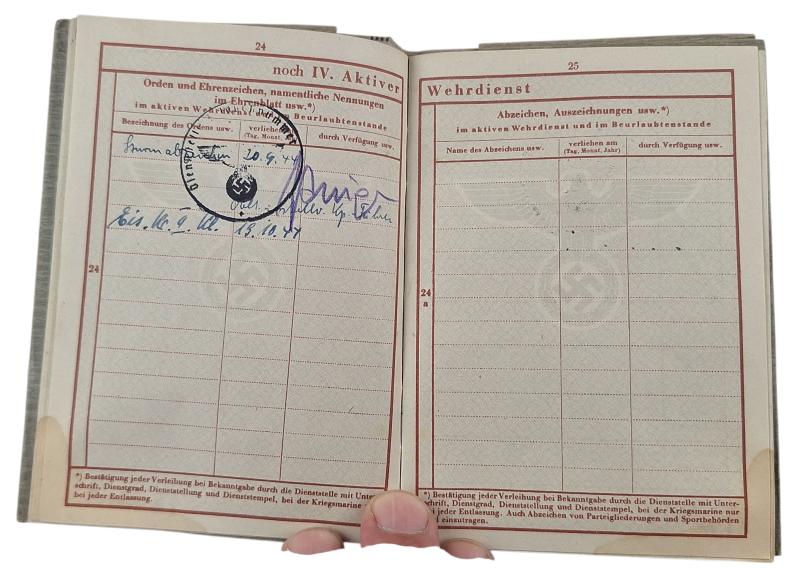 24
noch IV. Aktiver
Orden und Ehrenzeichen, namentliche Nennungen
im Ehrenblatt usw.*)
im aktiven Wehrdienst und im Beurlaubtenstande
Bezeichnung des Ordens usw.
verliehen am
(Tag, Monat, Jahr)
durch Verfügung usw.
Sturmabzeichen 20.9.44
Eis. Kr. II. Kl. 19.10.44
Dienststelle Feldpostnummer
24
*) Bestätigung jeder Verleihung bei Bekanntgabe durch die Dienststelle mit Unter-
schrift, Dienstgrad, Dienststellung und Dienststempel, bei der Kriegsmarine
bei jeder Entlassung.
25
Wehrdienst
Abzeichen, Auszeichnungen usw.*)
im aktiven Wehrdienst und im Beurlaubtenstande
Name des Abzeichens usw.
verliehen am
(Tag, Monat, Jahr)
durch Verfügung usw.
24
a
*) Bestätigung jeder Verleihung bei Bekanntgabe durch die Dienststelle mit Unter-
schrift, Dienstgrad, Dienststellung und Dienststempel, bei der Kriegsmarine nur
bei jeder Entlassung. Auch Abzeichen von Parteigliederungen und Sportbehörden
einzutragen.